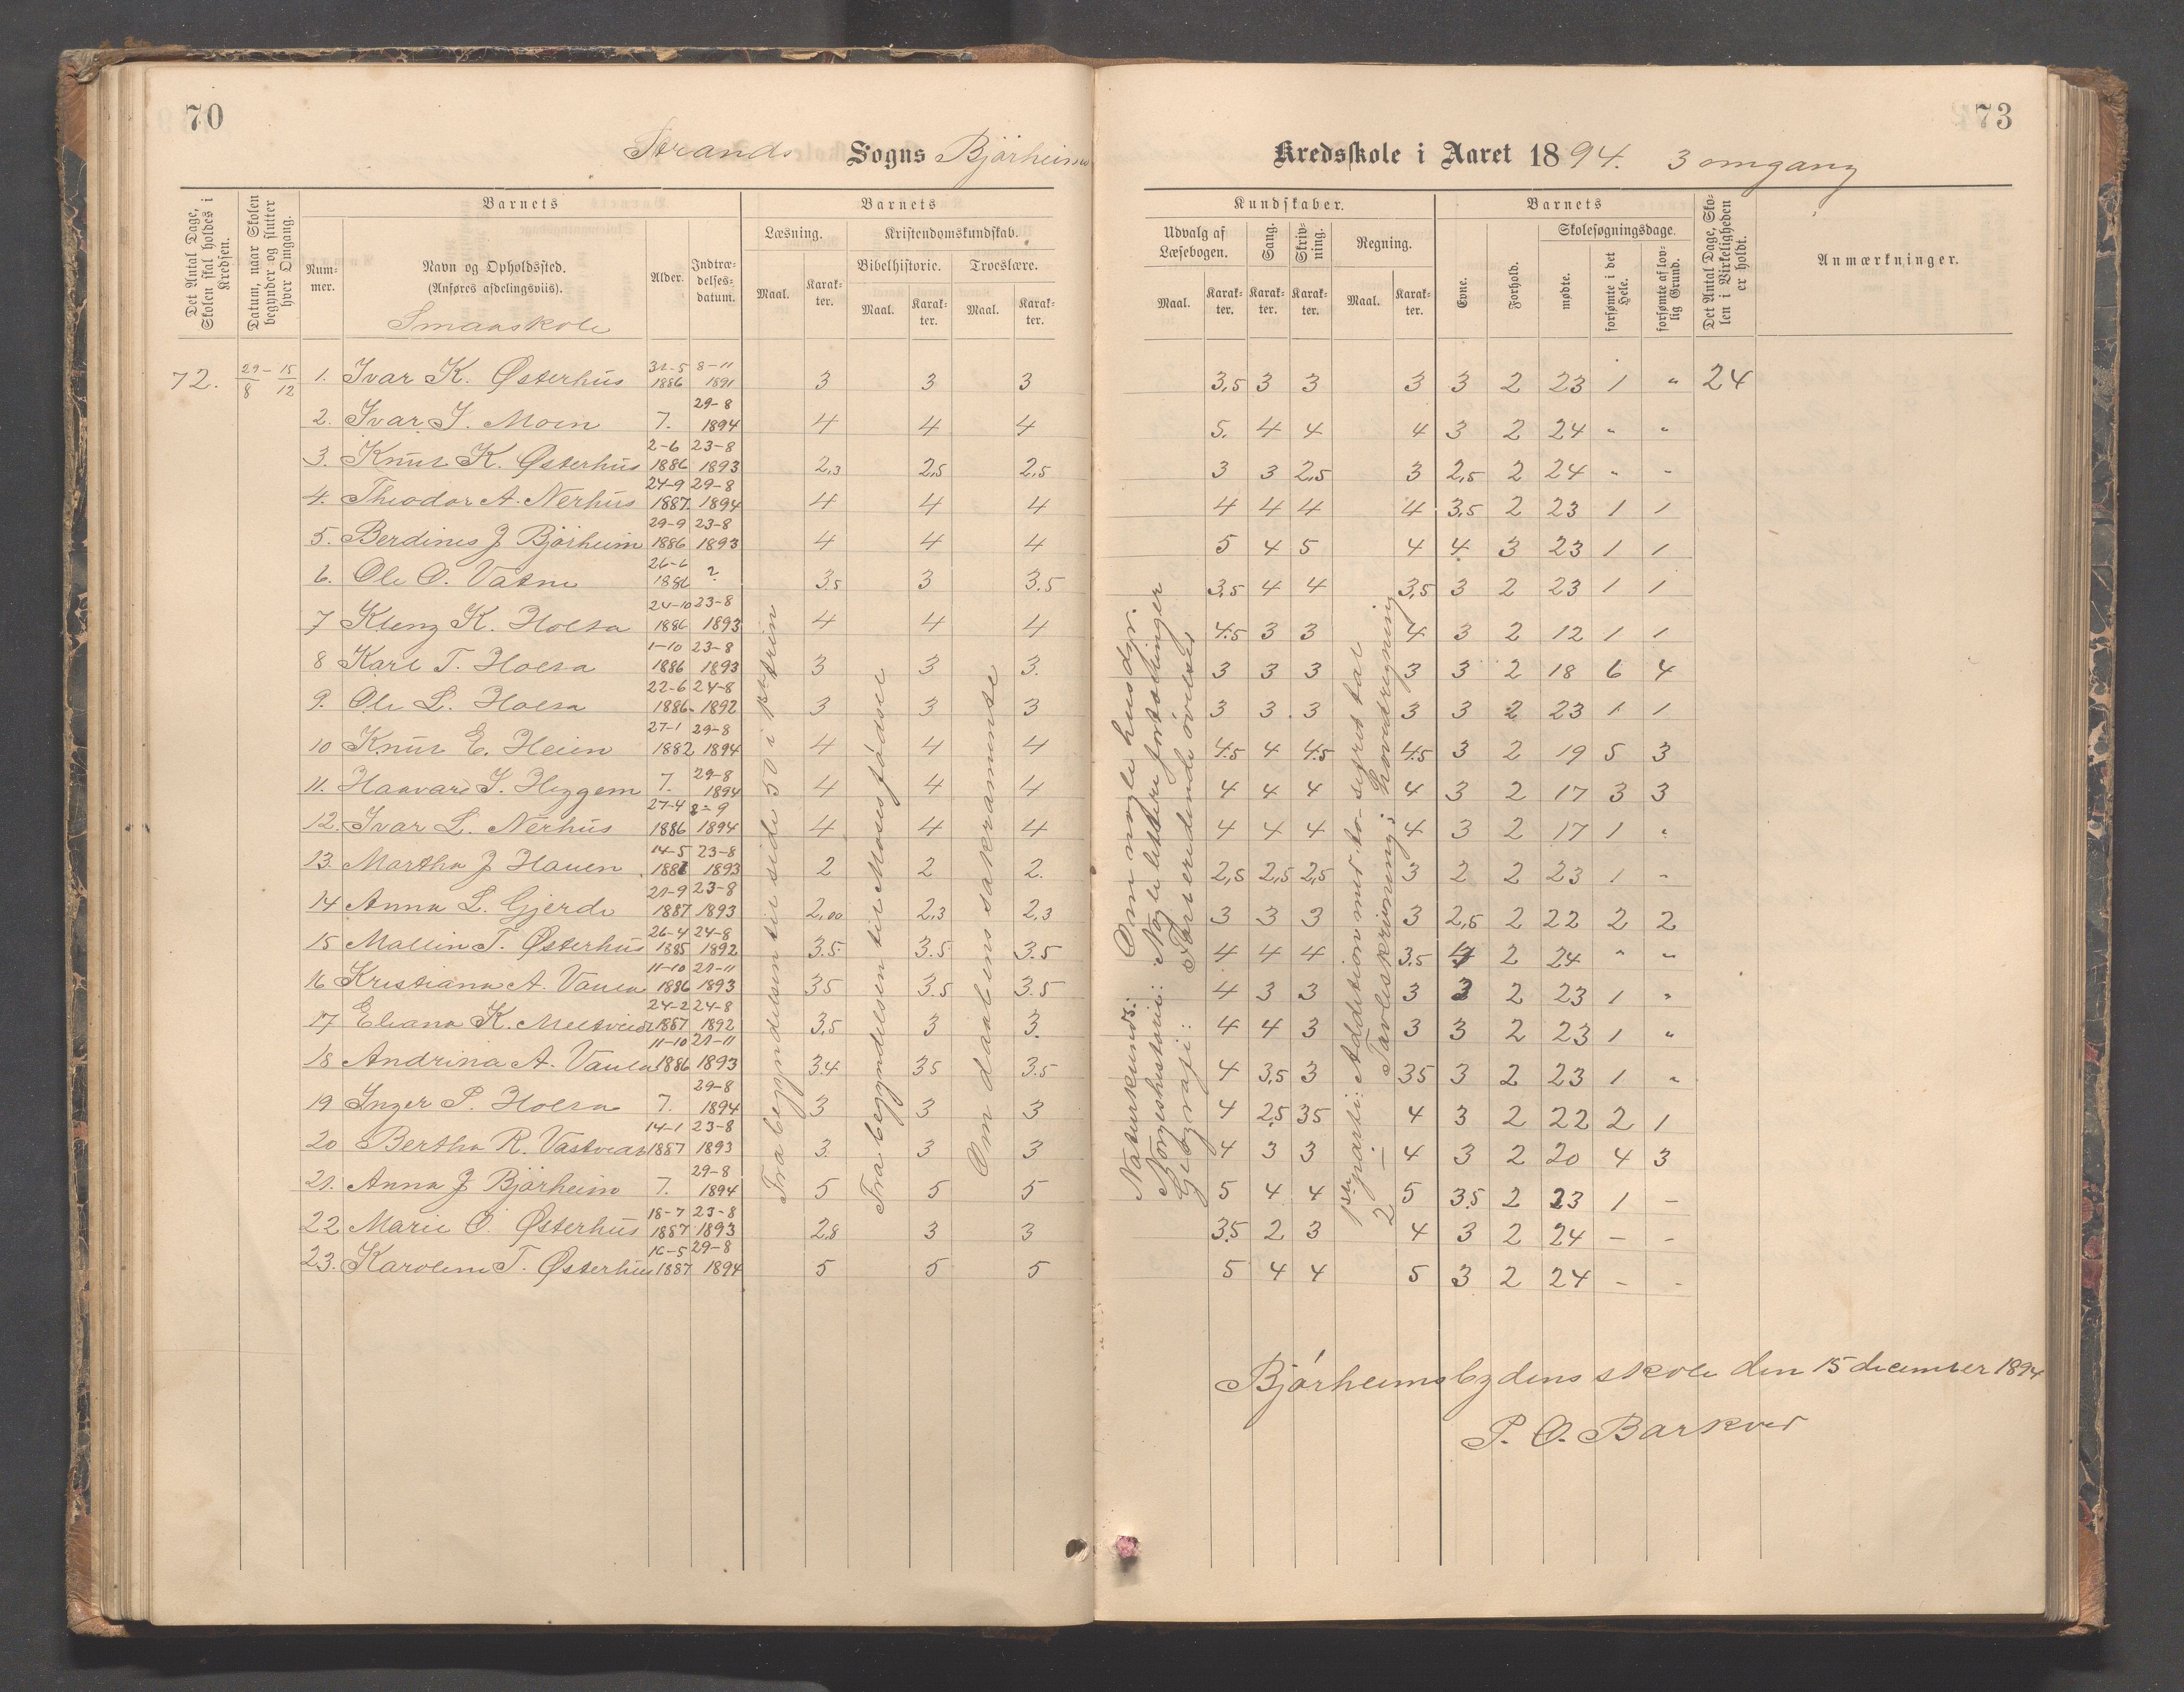 70
73
Strands Sogns Bjørheims
Kredsskole i Aaret 1894. 3 omgang
Det Antal Dage, Skolen skal holdes i Kredsen.
Datum, naar Skolen begynder og slutter hver Omgang.
Barnets
Nummer.
Navn og Opholdssted.
(Anføres afdelingsviis).
Smaaskole
Alder.
Indtrædelsesdatum.
Barnets
Læsning.
Maal.
Karakter.
Kristendomskundskab.
Bibelhistorie.
Maal.
Karakter.
Troeslære.
Maal.
Karakter.
Kundskaber.
Udvalg af Læsebogen.
Maal.
Karakter.
Sang.
Karakter.
Skrivning.
Karakter.
Regning.
Maal.
Karakter.
Barnets
Evne.
Forhold.
Skolesøgningsdage.
mødte.
forsømte i det Hele.
forsømte af lovlig Grund.
Det Antal Dage, Skolen i Virkeligheden er holdt.
Anmærkninger.
72. 29/8 – 15/12 1. Ivar K. Østerhus 31-5 1886 8-11 1891 3 3 3 3,5 3 3 3 3 2 23 1 " 24
2. Ivar J. Moen 7. 29-8 1894 4 4 4 5. 4 4 4 3 2 24 " "
3. Knut K. Østerhus 2-6 1886 23-8 1893 2,3 2,5 2,5 3 3 2,5 3 2,5 2 24 " "
4. Theodor A. Nerhus 24-9 1887 29-8 1894 4 4 4 4 4 4 4 3,5 2 23 1 1
5. Berdines J Bjørheim 29-9 1886 23-8 1893 4 4 4 5 4 5 4 4 3 23 1 1
6. Ole O. Vatne 26-6 1886 ? 3.5 3 3.5 3,5 4 4 3,5 3 2 23 1 1
7 Kleng K. Holta 24-10 1886 23-8 1893 4 4 4 4.5 3 3 4. 3 2 12 1 1
8 Karl T. Holta 1-10 1886 23-8 1893 3 3 3. 3 3 3 3 3 2 18 6 4
9. Ole L. Holta 22-6 1886 24-8 1892 3 3 3 3 3. 3 3 3 2 23 1 1
10 Knut E. Heien 27-1 1882 29-8 1894 4 4 4 4.5 4 4.5 4.5 3 2 19 5 3
11. Haavard S. Heggem 7. 29-8 1894 4 4 4 4 4 4 4 3 2 17 3 3
12. Ivar L. Nerhus 27-4 1886 2-9 1894 4 4 4 4 4 4 4 3 2 17 1 "
13. Martha J Hauen 14-5 1881 23-8 1893 2 2 2. 2,5 2,5 2,5 3 2 2 23 1 "
14 Anna L. Gjerde 21-9 1887 23-8 1893 2,00 2,3 2,3 3 3 3 3 2,5 2 22 2 2
15 Mallin T. Østerhus 26-4 1885 24-8 1892 3.5 3.5 3.5 4 4 4 3.5 4 2 24 " "
16 Kristiana A. Vaula 11-10 1886 21-11 1893 35 3.5 3.5 4 3 3 3 3 2 23 1 "
17 Eliana K. Meltveit 24-2 1887 24-8 1892 3,5 3 3. 4 4 3 3 3 2 23 1 "
18 Andrina A. Vaula 11-10 1886 21-11 1893 3.4 35 3.5 4 3,5 3 35 3 2 23 1 "
19 Inger P. Holta 7. 29-8 1894 3 3 3 4 2,5 35 4 3 2 22 2 1
20 Bertha R. Vastveat 14-1 1887 23-8 1893 3. 3 3 4 3 3 4 3 2 20 4 3
21. Anna J Bjørheim 7. 29-8 1894 5 5 5 5 4 4 5 3.5 2 23 1 –
22 Marie O. Østerhus 18-7 1887 23-8 1893 2.8 3 3 3.5 2 3 4 3 2 24 – –
23. Karoline T. Østerhus 16-5 1887 29-8 1894 5 5 5 5 4 4 5 3 2 24 – –
Fra begyndelsen til side 50 i 1ste trin
Fra begyndelsen til Moses fødsel
Om daabens sakramente
Naturkunds: Om nogle husdyr.
Norgeshistorie: Nogle lettere fortællinger
Geografi: Forberedende øvelser
1ste parti: Addition med to-sifret tal
2 – Tavleskrivning; Hovedregning
Bjørheimsbygdens skole den 15 december 1894
P. O. Barkved